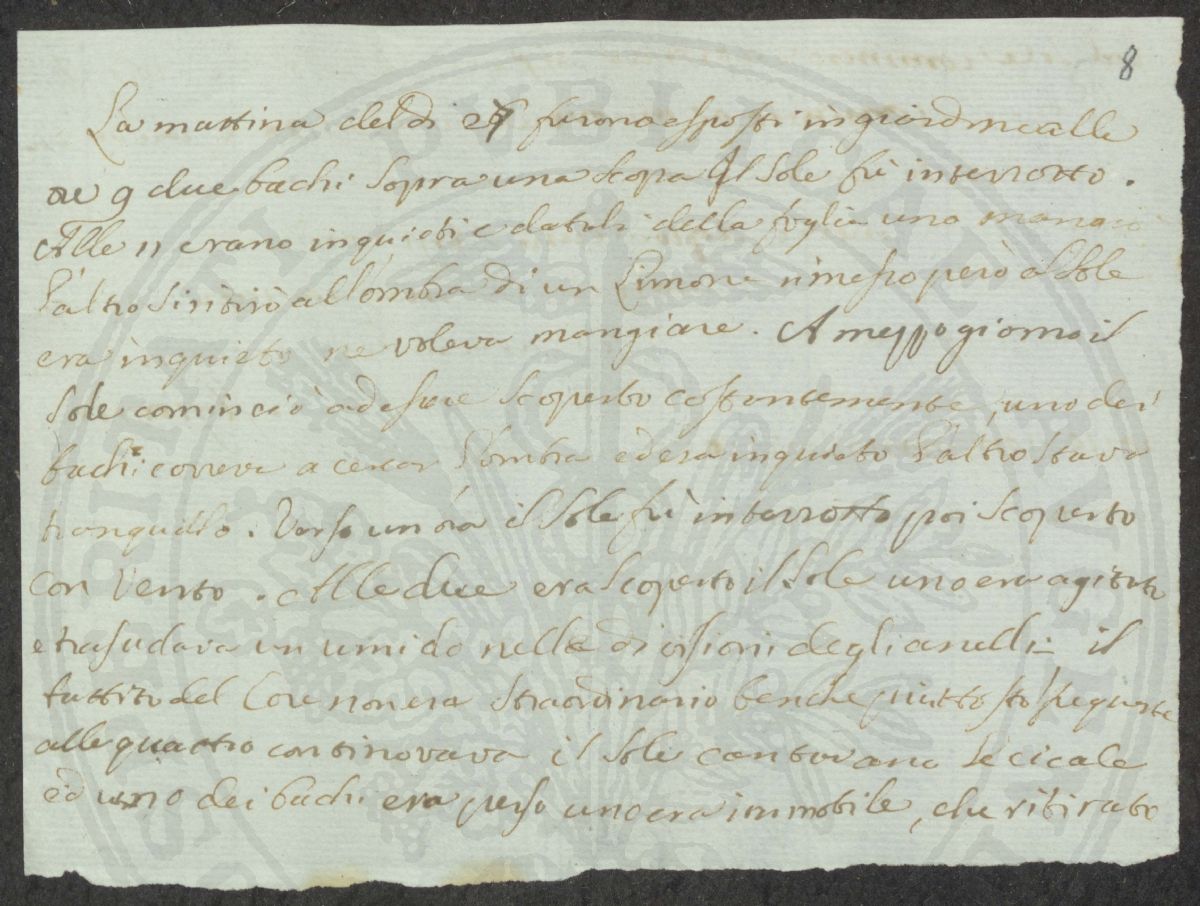 8
La mattina del dì 27 furono esposti in giardino alle
ore 9 due bachi sopra una scopa Il Sole fù interrotto.
Alle 11 erano inquieti e datoli della foglia uno mangiò
l'altro si ritirò all'ombra di un Limone rimesso però al Sole
era inquieto ne voleva mangiare. A mezzo giorno il
Sole cominciò ad essere scoperto costantemente, uno dei
bachi correva a cercar l'ombra ed era inquieto l'altro stava
tranquillo. Verso un óra il Sole fù interrotto poi scoperto
con vento. Alle due era scoperto il Sole uno era agitato
e trasudava un umido nelle divisioni degli anelli il
battito del Core non era straordinario benche piuttosto frequente
alle quattro continovava il Sole cantavano le cicale
ed uno dei bachi era perso uno era immobile, che ritirato